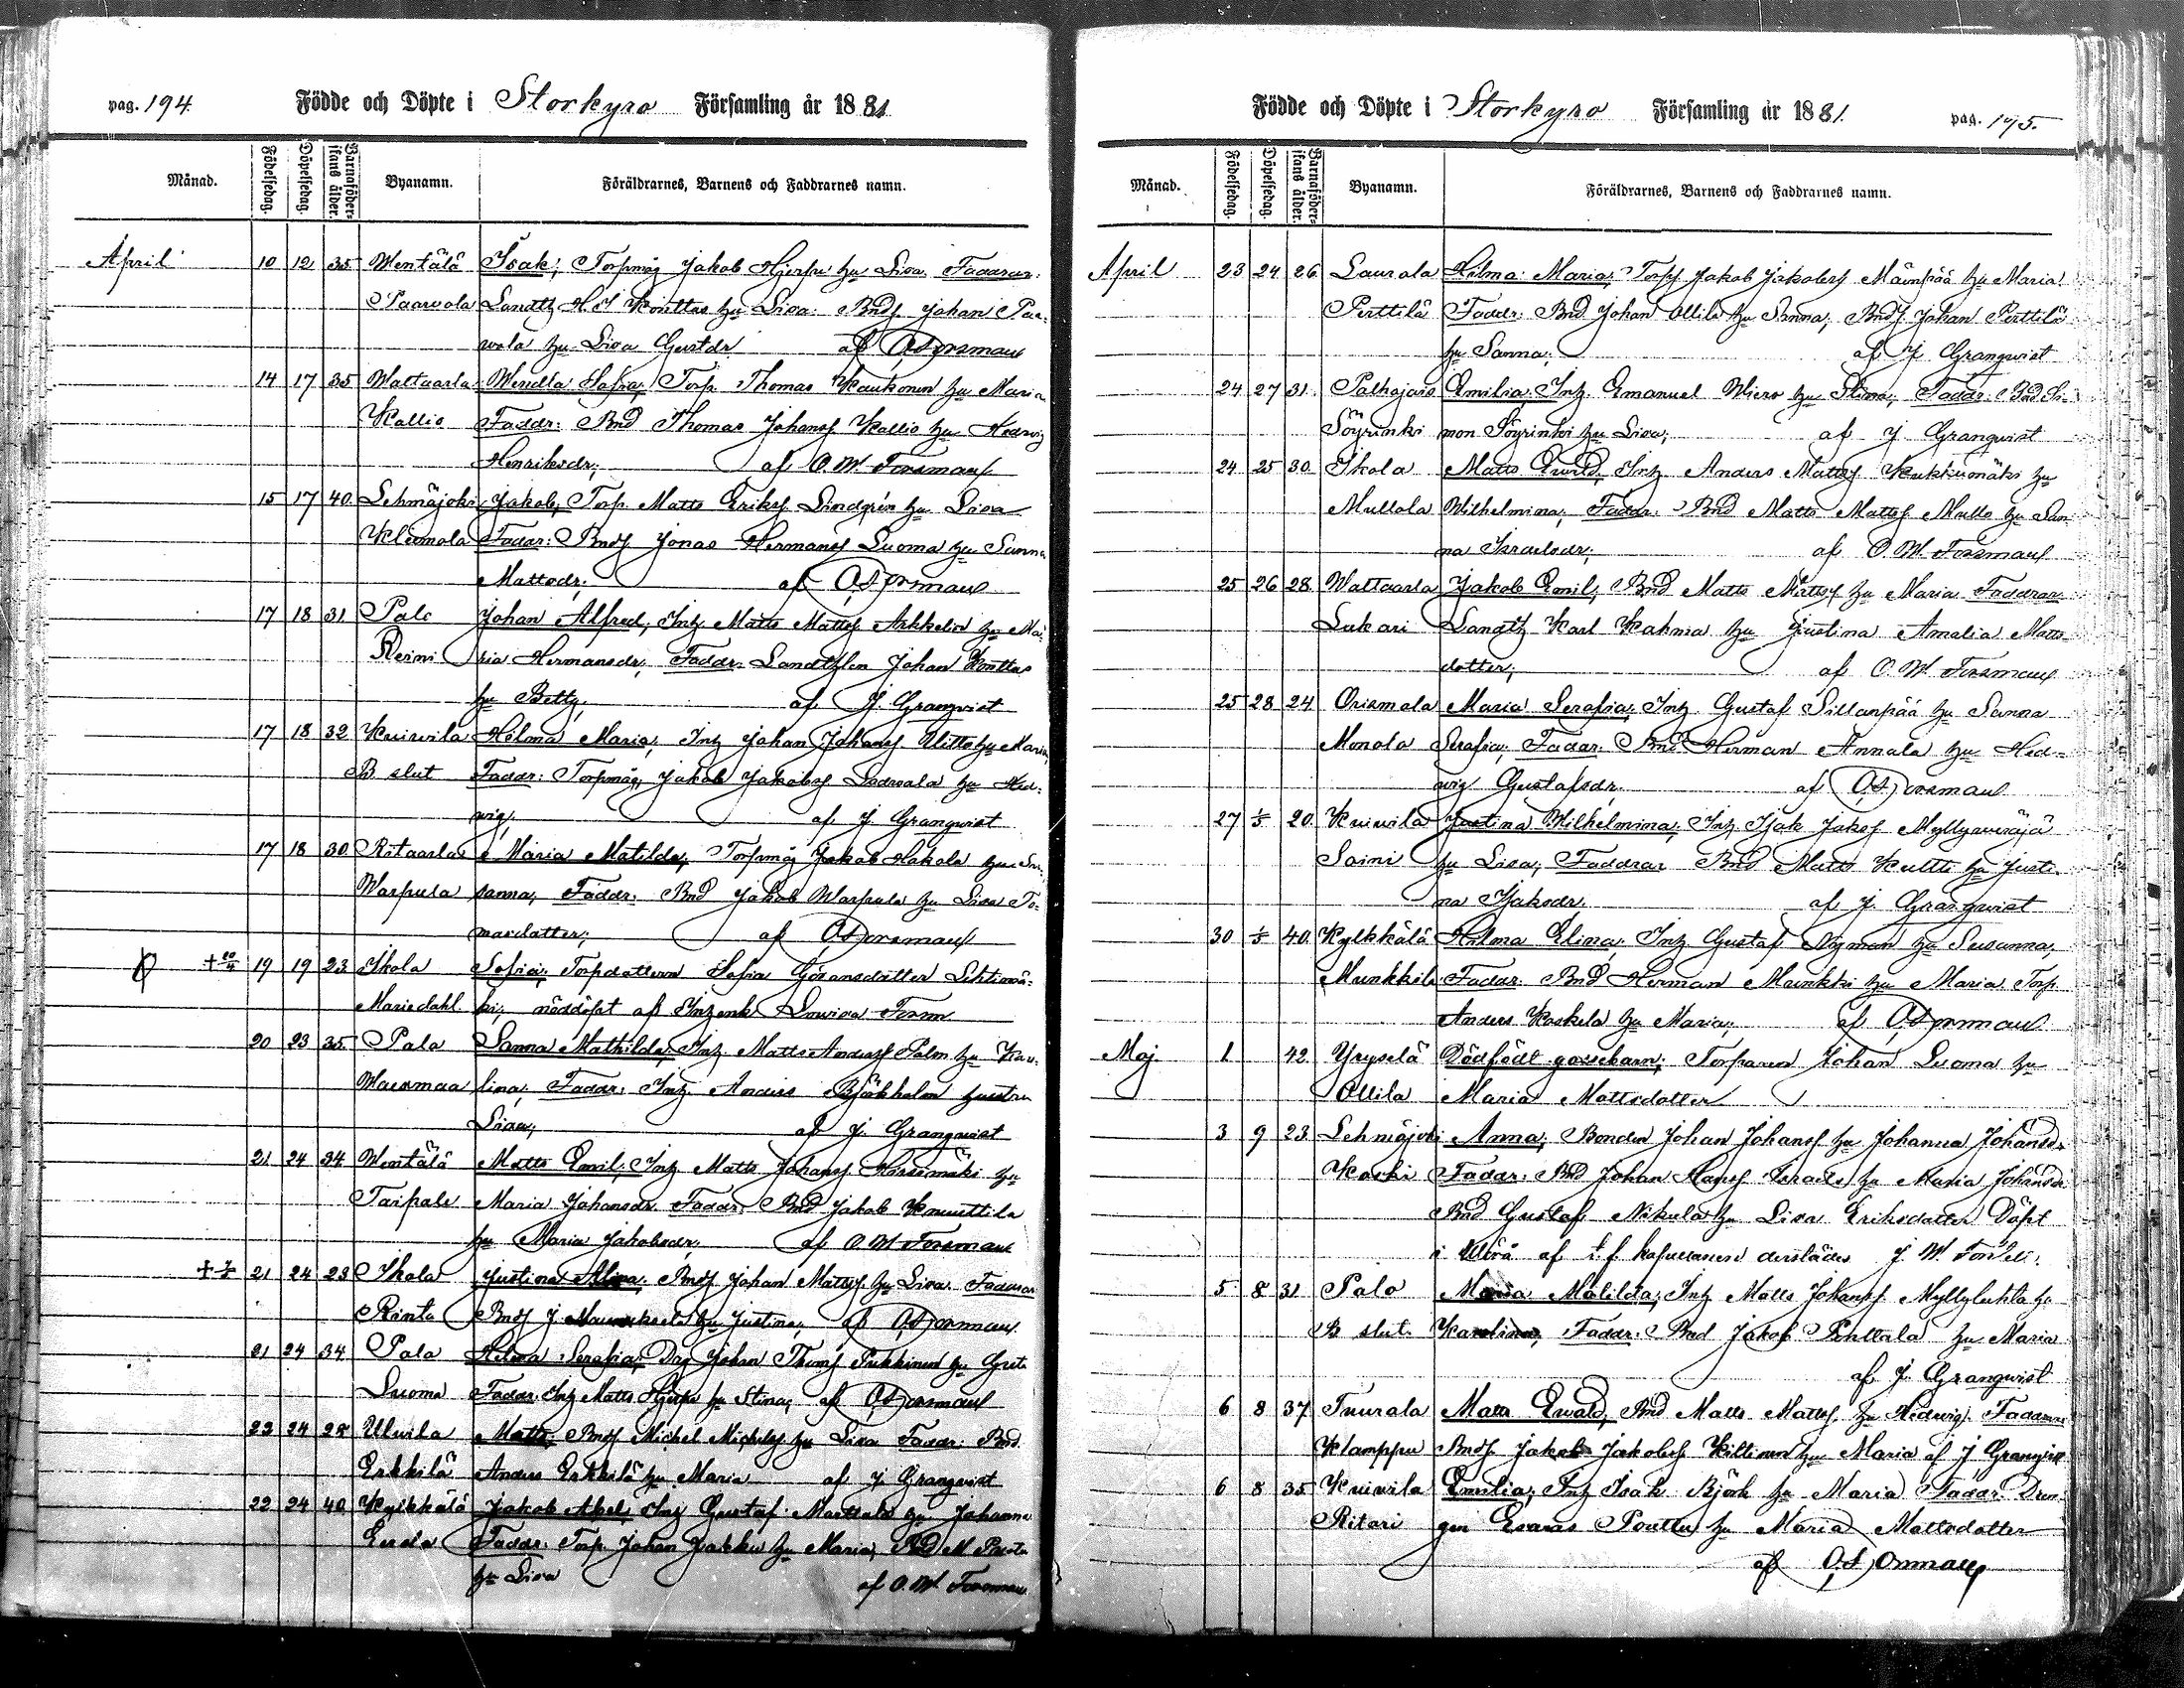 pag. 194. Födde och Döpte i Storkyro Församling år 1881
Månad. Födelsedag. Döpelsedag. Barnaföderskans ålder. Byanamn. Föräldrarnes, Barnens och Faddrarnes namn.
April 10 12 35 Wentälä Isak; Torpmåg Jakob Hjerpe hu Lisa. Faddrar:
Paarvola Landtz H. J. Kouttas hu Lisa: Bndf Johan Paa-
vola hu Lisa Gustdr af O. Forsman
14 17 35 Waltaarla Wendla Sofia; Torp. Thomas Kaukonen hu Maria
Kallio Faddr: Bnd Thomas Johansf Kallio hu Hedvig
Henriksdr; af O. W. Forsman
15 17 40 Lehmäjoki Jakob; Torp Matts Eriksf Lindgrén hu Lisa
Kleemola Faddr: Bndf Jonas Hermansf Luoma hu Sanna
Mattsdr; af O. Forsman
17 18 31 Palo Johan Alfred; Inh Matts Mattsf Arkkelin hu Ma-
Reini ria Hermansdr, Faddr. Landtzlen Johan Kouttas
hu Betty, af J. Granqvist
17 18 32 Kuivila Hilma Maria, Inh Johan Johansf hu Maria,
B slut Faddr: Torpmåg, Jakob Jakobsf hu Hed-
vig, af J Granqvist
17 18 30 Ritaarla Maria Matilda, Torpmåg Jakob Hakola hu Su-
Warpula sanna, Faddr. Bnd Jakob Warpula hu Lisa To-
masdotter; af O. Forsman
+ 20/4 19 19 23 Ikola Sofia; Torpdottern Sofia Göransdotter Lehtimä-
Mariedahl ki; nöddöpt af Inhenk Lovisa Form
20 23 35 Palo Sanna Mathilda, Inh Matts Andersf Palm hu Kau-
lina; Faddr: Inh Anders Björkholm hustru
Lisa; af J. Granqvist
21 24 34 Wentälä Matts Emil; Inh Matts Johansf hu
Taipale Maria Johansdr Faddr. Bnd Jakob Knuuttila
hu Maria Jakobsdr; af O. W. Forsman
21 24 23 Ikola Justina Bndf Johan Mattsf hu Lisa Faddrar
Rinta Bndf J. hu Justina; af O. Forsman
21 24 34 Palo Hilma Serafia; Dag Johan Thomsf Pukkinen hu Greta
Luoma Faddr. Inh Matts Hjerpe hu Stina; af O. Forsman
23 24 25 Ulvila Matts; Bndf Michel Michelsf hu Lisa Faddr: Bnd
Erkkilä Anders Erkkilä hu Maria af J Granqvist
22 24 40 Kylkkälä Jakob Abel, Inh Gustaf Marttala hu Johanna
Faddr: Torp. Johan Jakku hu Maria, Bnd M
hu Lisa af O. W. Forsman
Födde och Döpte i Storkyro Församling år 1881. pag. 195.
Månad. Födelsedag. Döpelsedag. Barnaföderskans ålder. Byanamn. Föräldrarnes, Barnens och Faddrarnes namn.
April 23 24 26 Laurola Hilma Maria; Torp Jakob Jakobsf Mäenpää hu Maria
Perttilä Faddr: Bnd Johan Ollila hu Sanna; Bndf Johan Perttilä
hu Sanna; af J Granqvist
24 27 31 Palhojais Emilia; Inh. Emanuel Wiero hu Stina; Faddr: Bnd Si-
Söyrinki mon Söyrinki hu Lisa; af J Granqvist
24 25 30 Ikola Matts Evald; Inh Anders Mattsf Kukkumäki hu
Mullola Wilhelmina; Faddr: Bnd Matts Mattsf Mullo hu San-
na Israelsdr; af O. W. Forsman
25 26 28 Waltaarla Jakob Emil; Bnd Matts Mattsf hu Maria Faddrar
Lukari Landtz Karl Kahma hu Justina Amalia Matts-
dotter; af O. W. Forsman
25 28 24 Orismala Maria Serafia; Inh Gustaf Sillanpää hu Sanna
Monola Serafia; Faddr: Bnd Herman Annala hu Hed-
vig Gustafsdr, af O. Forsman
27 1/5 20 Kuivila Justina Wilhelmina, Inh Isak Jakobsf Myllyviäjä
Soini hu Lisa; Faddrar Bnd Matts Kultti hu Justi-
na Isaksdr. af J. Granqvist
30 1/5 40 Kylkkälä Hilma Elina; Inh Gustaf Nyman hu Susanna;
Munkkila Faddr: Bnd Herman Munkki hu Maria, Torp
Anders Koskela hu Maria; af O. Forsman
Maj 1 42 Yryselä Dödfödt gossebarn; Torparen Johan Luoma hu
Ollila Maria Mattsdotter
3 9 23 Lehmäjoki Anna; Bonden Johan Johansf hu Johanna Johansdr
Koski Faddr: Bnd Johan Hansf Israels hu Maria Johansdr
Bnd Gustaf Nikula hu Lisa Eriksdotter Döpt
i af t.f. kapellanen derstädes J W.
5 8 31 Palo Maria Matilda; Inh Matts Johansf Myllyluhta hu
B slut. Karolina; Faddr: Bnd Jakob Penttala hu Maria
af J. Granqvist
6 8 37 Tuurala Matts Evald; Bnd Matts Mattsf hu Hedvig. Faddrar
Klamppu Bndf Jakob Jakobsf Kiltinen hu Maria af J Granqvist
6 8 35 Kuivila Emilia; Inh Isak Björk hu Maria Faddr: Dren-
Ritari gen Esaias Pouttu hu Maria Mattsdotter
af O. Forsman